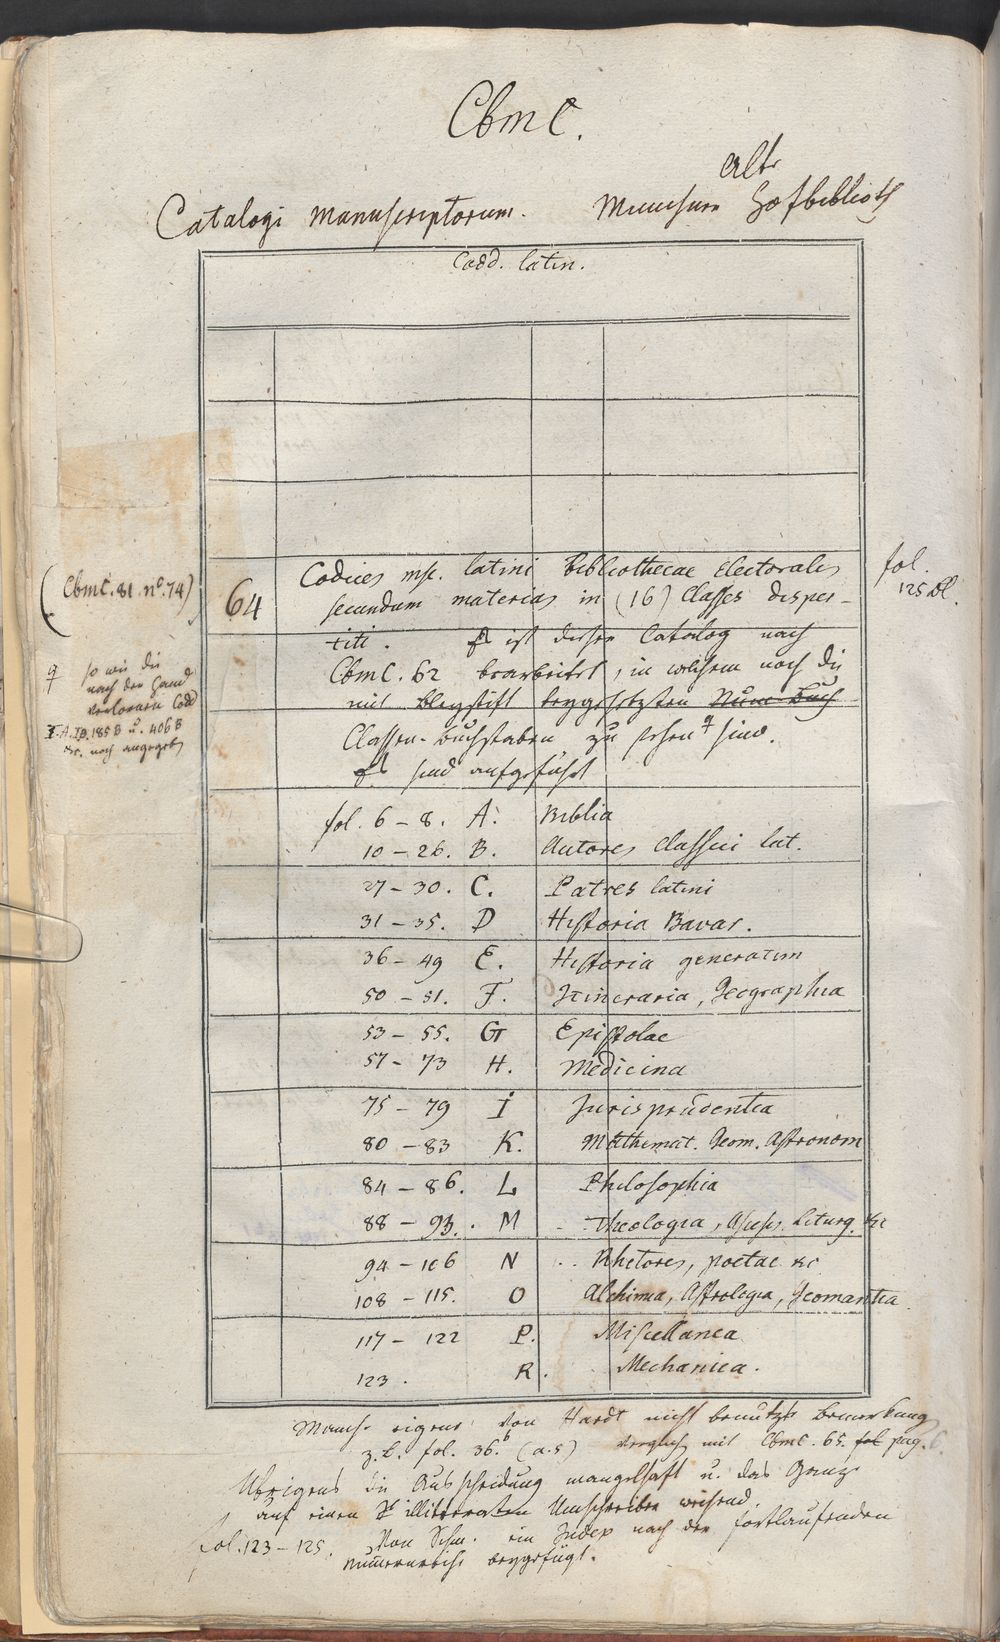 CbmC.
alte
Catalogi Manuscriptorum. Münchner Hofbiblioth
Codd. latin.
(Cbmc. 81. nº. 74)
64
Codices msc. latini Bibliothecae Electoralis
fol.
125 Bl.
secundum materias in (16) Classes disper-
titi. Es ist dieser Catalog nach
CbmC. 62 bearbeitet, in welchem noch die
mit Bleystift beygesetzten Num Buch
Classen-Buchstaben zu sehen sind.
Es sind aufgeführt
so wie die
nach der Hand
verlornen Codd
185 B u. 406 B
&c. noch angegeben
fol. 6 – 8. A. Biblia
10 – 26. B. Autores classici lat.
27 – 30. C. Patres latini
31 – 35. D Historia Bavar.
36 – 49 E. Historia generatim
50 – 51. F. Itineraria, Geographia
53 – 55. G Epistolae
57 – 73 H. Medicina
75 – 79 I Jurisprudentia
80 – 83 K. Mathemat. Geom. Astronom
84 – 86. L Philosophia
88 – 93. M Theologia, Ascesis. Liturg. &c
94 – 106 N Rhetores, poetae &c
108 – 115. O Alchimia, Astrologia, Geomantia.
117 – 122 P. Miscellanea
123. R. Mechanica.
Manche eigene von Hardt nicht benutzte Bemerkung
z. B. fol. 36.b (a. 5) verglich mit Cbmc. 65. fol pag. 6.
Übrigens die Ausscheidung mangelhaft u. das Ganze
auf einen illitteraten Umschreiber weisend.
fol. 123 – 125. Von Schm. ein Index nach der fortlaufenden
Numernreihe beygefügt.